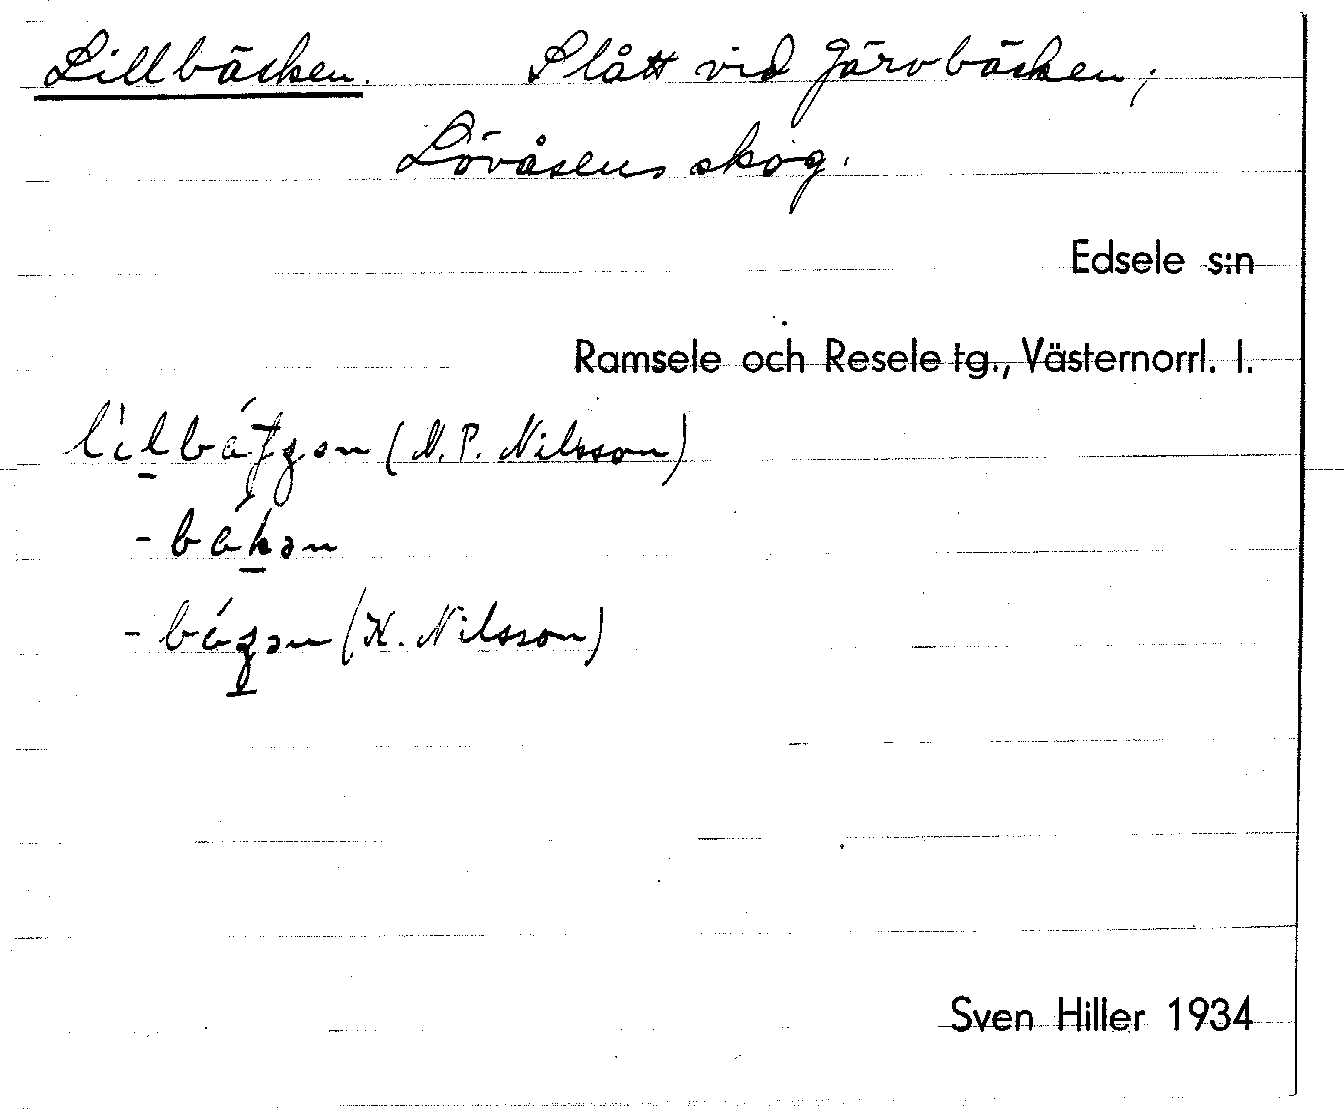 Lillbäcken. Slått vid Järvbäcken,
Lövåsens skog.
Edsele s:n
Ramsele och Resele tg., Västernorrl. l.
(N. P. Nilsson)
(K. Nilsson)
Sven Hiller 1934